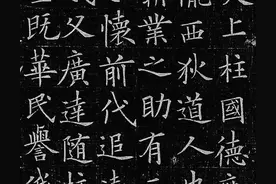 上柱國德
西狄道人
業之助有
懷前代追
父廣達随
既華民譽